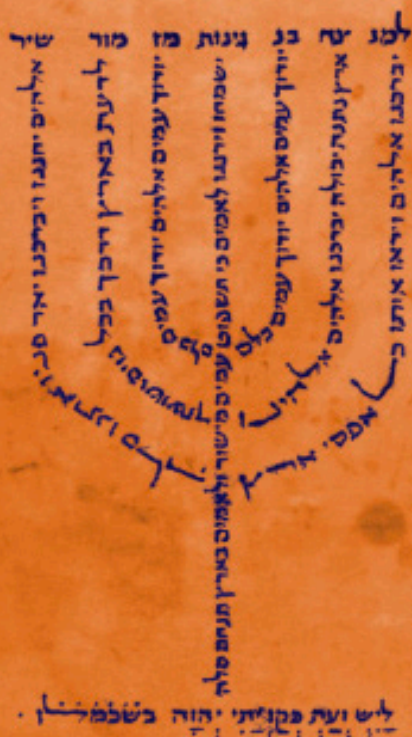 למנ צח בנ גינות מז מור שיר
אלהים יחננו ויברכנו יאר פניו אתנו סלה
לדעת בארץ דרכך בכל גוים ישועתך
יודוך עמים אלהים יודוך עמים כלם
ישמחו וירננו לאמים כי תשפט עמים מישור ולאמים בארץ תנחם סלה
יודוך עמים אלהים יודוך עמים כלם
ארץ נתנה יבולה יברכנו אלהים אלהינו
יברכנו אלהים וייראו אותו כל אפסי ארץ
ליש ועת יהוה